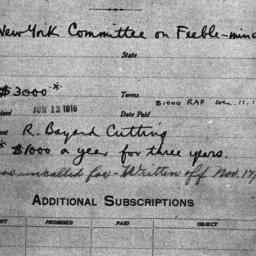 New York Committee on Feeble-min
State
$3000*
Terms
$1000 RAF Dec. 11, 1
ised
JUN 12 1916
Date Paid
ent
R. Bayard Cutting
* $1000 a year for three years.
uncalled for - Written off Nov. 17/
ADDITIONAL SUBSCRIPTIONS
NT
PROMISED
PAID
OBJECT